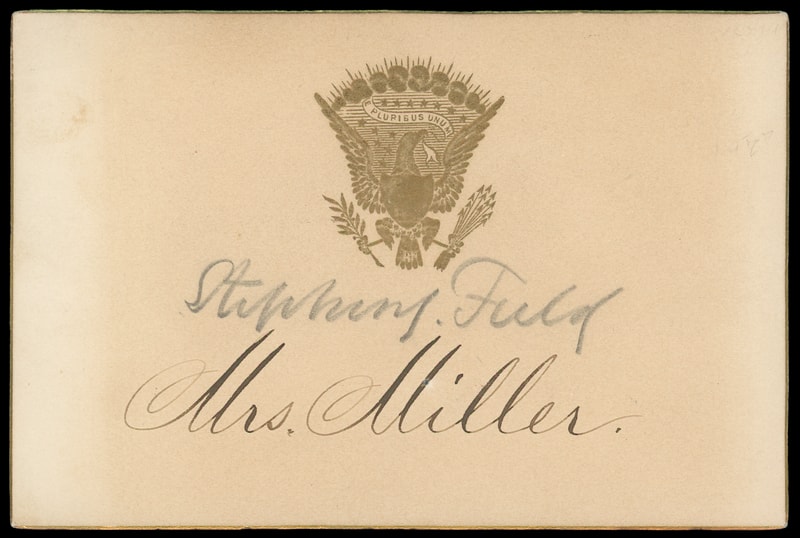 E PLURIBUS UNUM
Stephen J. Field
Mrs. Miller.